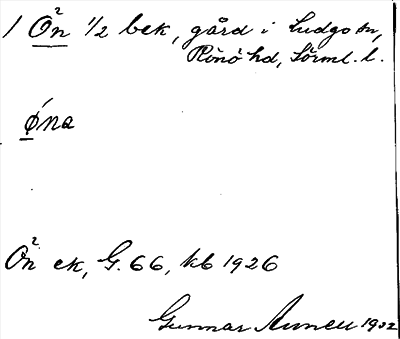 1 Ön² ½ bek, gård i Ludgo sn,
Rönö hd, Sörml. l.
ǿna
Ön² ek, G. 66, kb 1926
Gunnar 1932